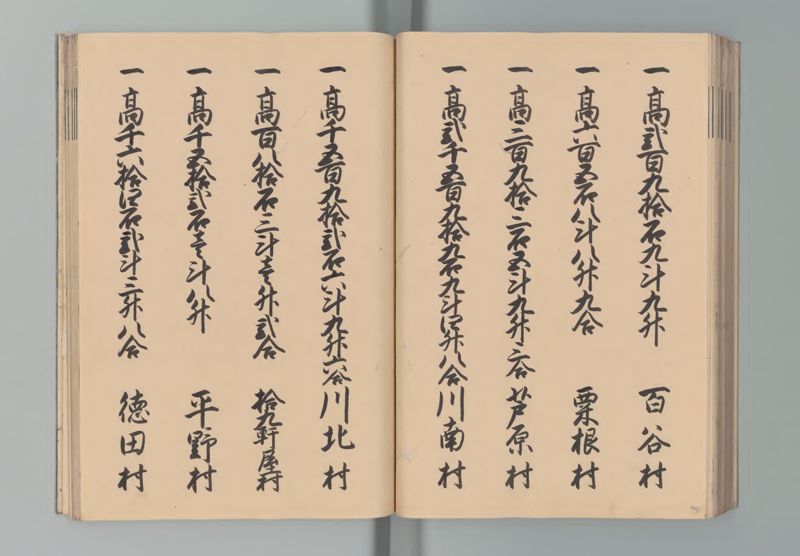 一 高弐百九拾石九斗九升 百谷村
一 高六百五石八斗八升九合 粟根村
一 高三百九拾三石五斗九升六合 芦原村
一 高弐千五百九拾九石九斗四升八合 川南村
一 高千五百九拾弐石六斗九升六合 川北村
一 高百八拾石三斗壱升弐合 拾九軒屋村
一 高千五拾弐石壱斗八升 平野村
一 高千六拾四石弐斗三升八合 徳田村